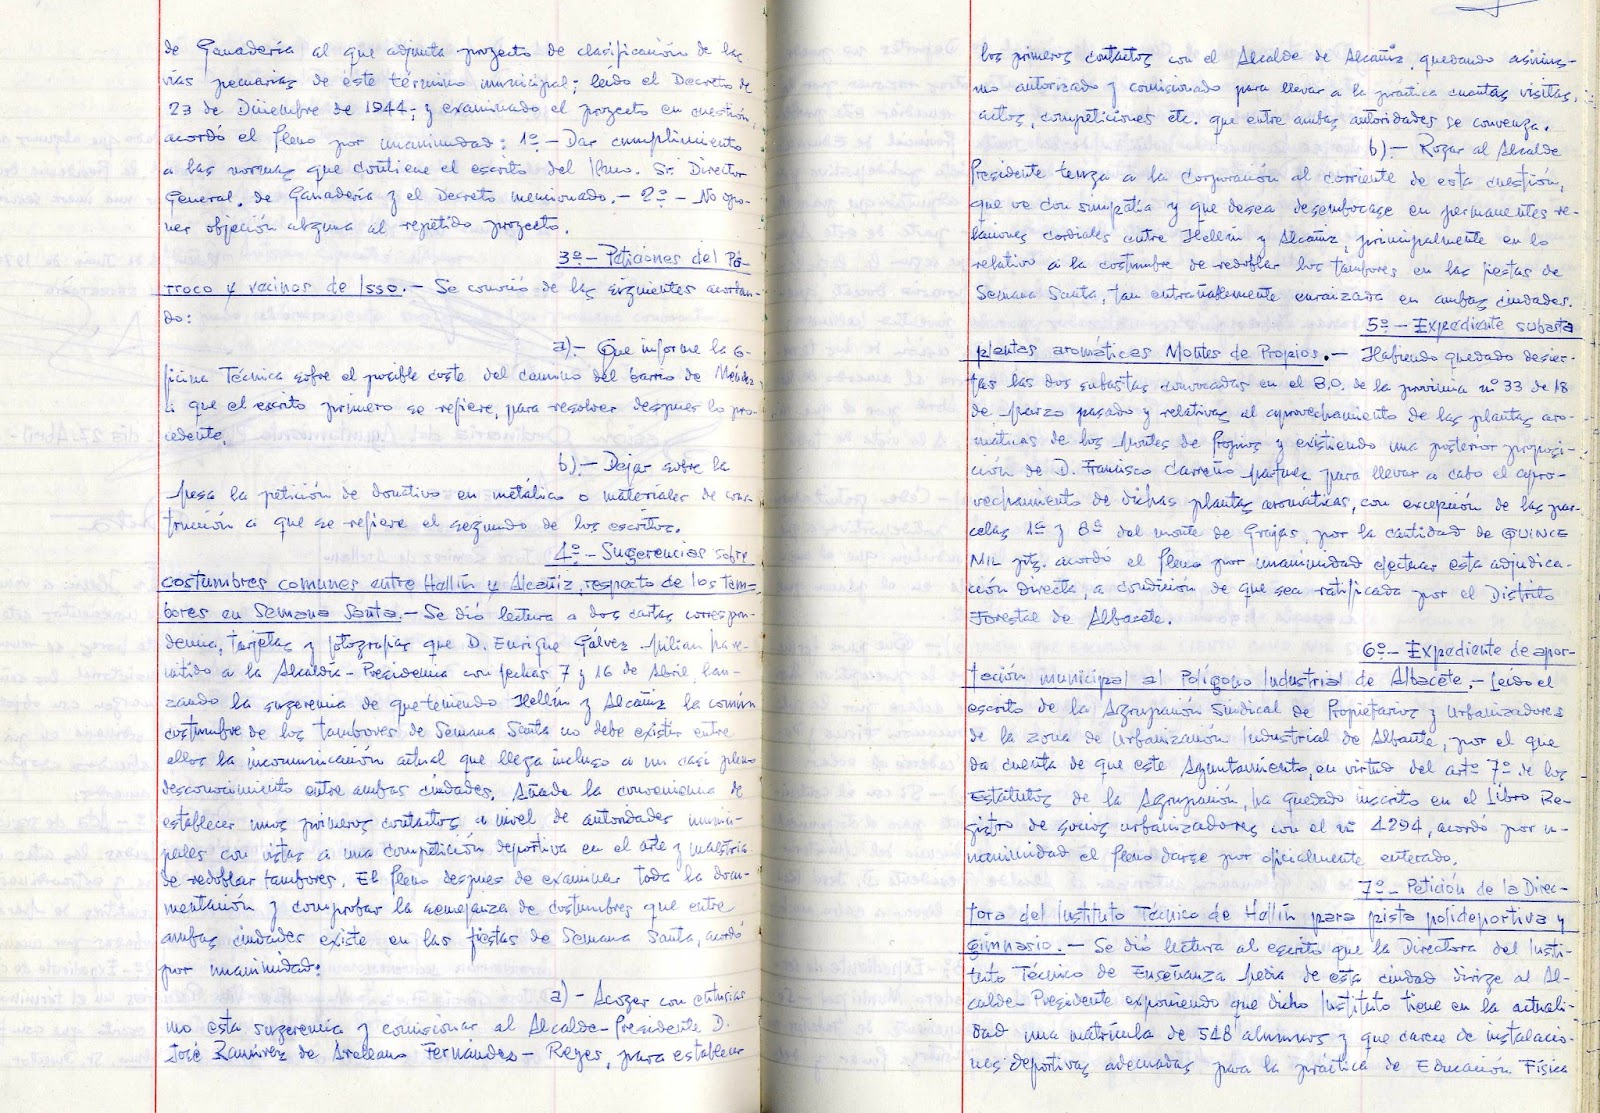 de Ganadería al que adjunta proyecto de clasificación de las
vías pecuarias de este término municipal; leído el Decreto de
23 de Diciembre de 1944; y examinado el proyecto en cuestión,
acordó el Pleno por unanimidad: 1º.- Dar cumplimiento
a las normas que contiene el escrito del Ilmo. Sr. Director
General, de Ganadería y el Decreto mencionado.- 2º - No opo-
ner objeción alguna al repetido proyecto.
3º.- Peticiones del Pá-
rroco y vecinos de Isso.- Se conoció de las siguientes acordan-
do:
a).- Que informe la O-
ficina Técnica sobre el posible coste del camino del barrio de Méndez
a que el escrito primero se refiere, para resolver despues lo pro-
cedente.
b).- Dejar sobre la
Mesa la petición de donativo en metálico o materiales de cons-
trucción a que se refiere el segundo de los escritos.
4º.- Sugerencias sobre
costumbres comunes entre Hellín y Alcañiz, respecto de los tam-
bores en Semana Santa.- Se dió lectura a dos cartas correspon-
dencia, tarjetas y fotografías que D. Enrique Gálvez Millan ha re-
mitido a la Alcaldía-Presidencia con fechas 7 y 16 de Abril, lan-
zando la sugerencia de que teniendo Hellín y Alcañiz la común
costumbre de los tambores de Semana Santa no debe existir entre
ellos la incomunicación actual que llega incluso a un casi pleno
desconocimiento entre ambas ciudades. Añade la conveniencia de
establecer unos primeros contactos a nivel de autoridades munici-
pales con vistas a una competición deportiva en el arte y maestría
de redoblar tambores. El Pleno despues de examinar toda la docu-
mentación y comprobar la semejanza de costumbres que entre
ambas ciudades existe en las fiestas de Semana Santa, acordó
por unanimidad:
a) - Acoger con entusias
mo esta sugerencia y comisionar al Alcalde-Presidente D.
José Ramírez de Arellano Fernández-Reyes, para establecer
los primeros contactos con el Alcalde de Alcañiz, quedando asimis-
mo autorizado y comisionado para llevar a la practica cuantas visitas,
actos, competiciones etc. que entre ambas autoridades se convenga.
b).- Rogar al Alcalde
Presidente tenga a la Corporación al corriente de esta cuestión,
que ve con simpatía y que desea desembocase en permanentes re-
laciones cordiales entre Hellín y Alcañiz, principalmente en lo
relativo a la costumbre de redoblar los tambores en las fiestas de
Semana Santa, tan entrañablemente enraizada en ambas ciudades.
5º.- Expediente subasta
plantas aromáticas Montes de Propios.- Habiendo quedado desier-
tas las dos subastas convocadas en el B.O. de la provincia nº 33 de 18
de Marzo pasado y relativas al aprovechamiento de las plantas aro-
máticas de los Montes de Propios y existiendo una posterior proposi-
ción de D. Francisco Carreño para llevar a cabo el apro-
vechamiento de dichas plantas aromáticas, con excepción de las par-
celas 1ª y 8ª del monte de Grajas, por la cantidad de QUINCE
MIL ptz. acordó el Pleno por unanimidad efectuar esta adjudica-
ción directa, a condición de que sea ratificada por el Distrito
Forestal de Albacete.
6º.- Expediente de apor-
tación municipal al Polígono Industrial de Albacete.- Leido el
escrito de la Agrupación Sindical de Propietarios y Urbanizadores
de la zona de Urbanización Industrial de Albacete, por el que
da cuenta de que este Ayuntamiento, en virtud del artº 7º de los
Estatutos de la Agrupación, ha quedado inscrito en el Libro Re-
gistro de socios urbanizadores con el nº 4294, acordó por u-
nanimidad el Pleno darse por oficialmente enterado.
7º.- Petición de la Direc-
tora del Instituto Técnico de Hellín para pista polideportiva y
gimnasio.- Se dió lectura al escrito que la Directora del Insti-
tuto Técnico de Enseñanza Media de esta ciudad dirige al Al-
calde-Presidente exponiendo que dicho Instituto tiene en la actuali-
dad una matrícula de 548 alumnos y que carece de instalacio-
nes deportivas adecuadas para la práctica de Educación Física